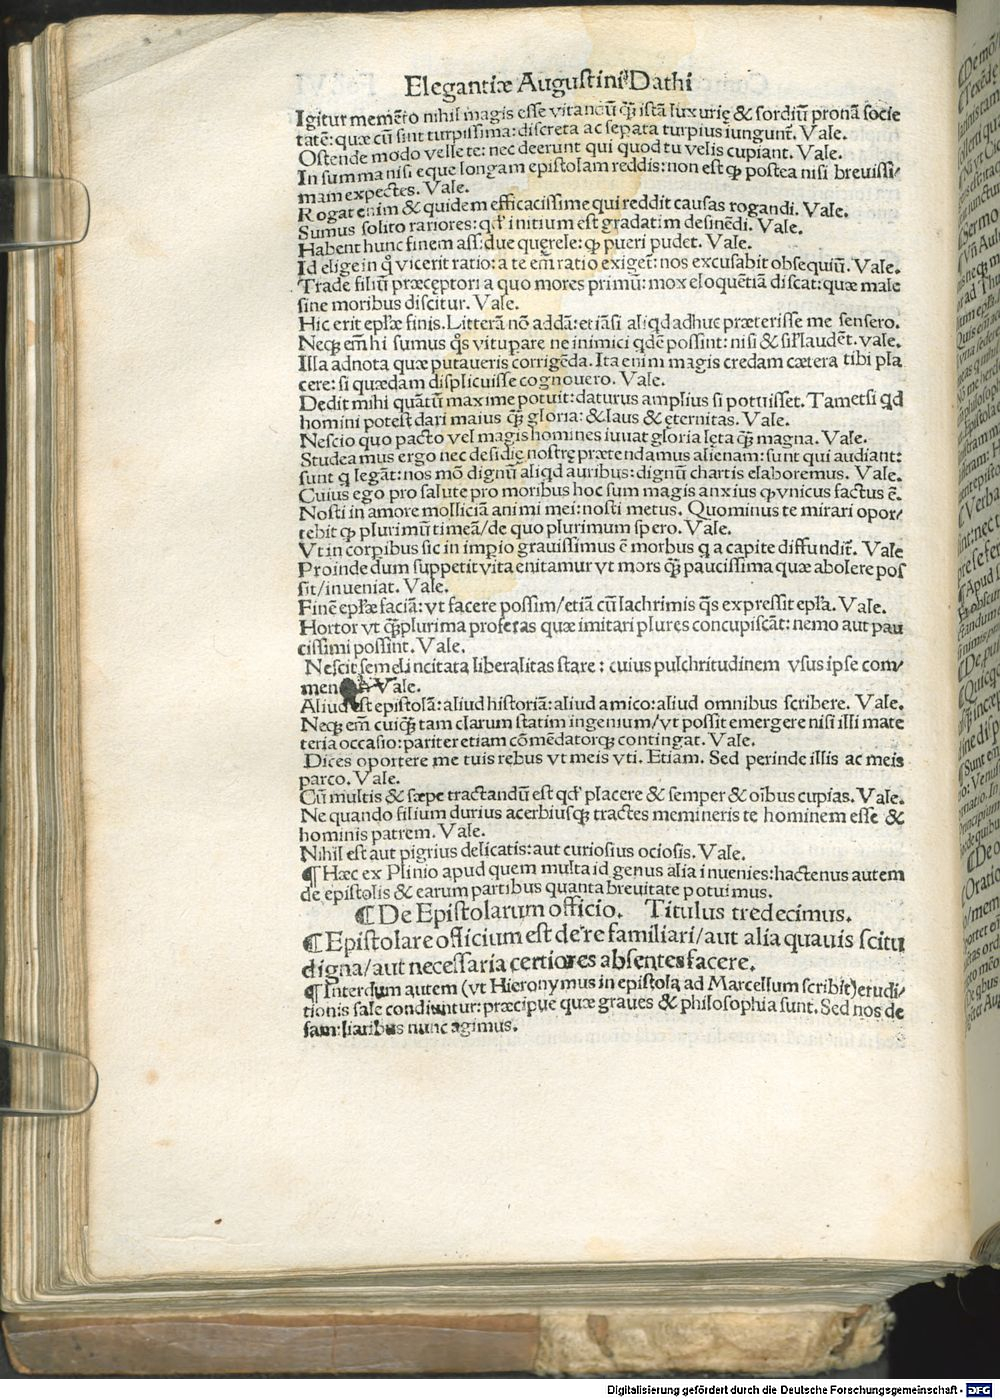 Elegantiæ Augustini Dathi
Igitur memēto nihil magis esse vitandū q̄ȝ istā luxurię & sordiū pronā socie
tatē: quæ cū sint turpissima: discreta ac sepata turpius iungunt̄. Vale.
Ostende modo velle te: nec deerunt qui quod tu velis cupiant. Vale.
In summa nisi eque longam epistolam reddis: non est ꝙ postea nisi breuissi/
mam expectes. Vale.
Rogat enim & quidem efficacissime qui reddit causas rogandi. Vale.
Sumus solito rariores: qđ initium est gradatim desinēdi. Vale.
Habent hunc finem ass: due querele: ꝙ pueri pudet. Vale.
Id elige in q̊ vicerit ratio: a te em̄ ratio exiget̄: nos excusabit obsequiū. Vale.
Trade filiū præceptori a quo mores primū: mox eloquētiā discat: quæ male
sine moribus discitur. Vale.
Hic erit epłæ finis. Litterā nō addā: etiāsi aliqd adhuc præterisse me sensero.
Neqȝ em̄ hi sumus q̊s vitupare ne inimici qdē possint: nisi & siłlaudēt. vale.
Illa adnota quæ putaueris corrigēda. Ita enim magis credam cætera tibi pla
cere: si quædam displicuisse cognouero. Vale.
Dedit mihi quātū maxime potuit: daturus amplius si potuisset. Tametsi qd
homini potest dari maius q̄ȝ gloria: & laus & ęternitas. Vale.
Nescio quo pacto vel magis homines iuuat gloria lęta q̄ȝ magna. Vale.
Studeamus ergo nec desidię nostrę prætendamus alienam: sunt qui audiant:
sunt q legāt: nos mō dignū aliqd auribus: dignū chartis elaboremus. Vale.
Cuius ego pro salute pro moribus hoc sum magis anxius ꝙ vnicus factus ē.
Nosti in amore molliciā animi mei: nosti metus. Quominus te mirari opor/
tebit ꝙ plurimū timeā/de quo plurimum spero. Vale.
Vt in corpibus sic in impio grauissimus ē morbus q a capite diffundit̄. Vale
Proinde dum suppetit vita enitamur vt mors q̄ȝ paucissima quæ abolere pos
sit/inueniat. Vale.
Finē epłæ faciā: vt facere possim/etiā cū lachrimis q̄s expressit epła. Vale.
Hortor vt q̄ȝplurima proferas quæ imitari plures concupiscāt: nemo aut pau
cissimi possint. Vale.
Nescit semel incitata liberalitas stare: cuius pulchritudinem vsus ipse com/
men Vale.
Aliud est epistolā: aliud historiā: aliud amico: aliud omnibus scribere. Vale.
Neqȝ em̄ cuiqȝ tam clarum statim ingenium/vt possit emergere nisi illi mate
teria occasio: pariter etiam cōmēdatorqȝ contingat. Vale.
Dices oportere me tuis rebus vt meis vti. Etiam. Sed perinde illis ac meis
parco. Vale.
Cū multis & sæpe tractandū est qđ placere & semper & oībus cupias. Vale.
Ne quando filium durius acerbiusqȝ tractes memineris te hominem esse &
hominis patrem. Vale.
Nihil est aut pigrius delicatis: aut curiosius ociosis. Vale.
¶ Hæc ex Plinio apud quem multa id genus alia inuenies: hactenus autem
de epistolis & earum partibus quanta breuitate potuimus.
¶ De Epistolarum officio. Titulus tredecimus.
¶ Epistolare officium est de re familiari/aut alia quauis scitu
digna/aut necessaria certiores absentes facere.
¶ Interdum autem (vt Hieronymus in epistola ad Marcellum scribit) erudi/
tionis sale condiuntur: præcipue quæ graues & philosophia sunt. Sed nos de
familiaribus nunc agimus.
Digitalisierung gefördert durch die Deutsche Forschungsgemeinschaft - DFG